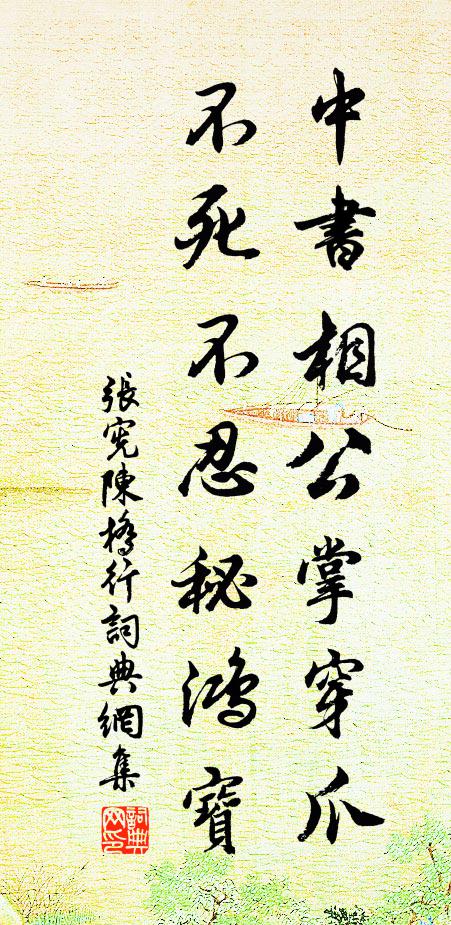 中書相公掌穿爪
不死不忍秘鴻寶
張憲陳橋行詞典網集
詞典网印